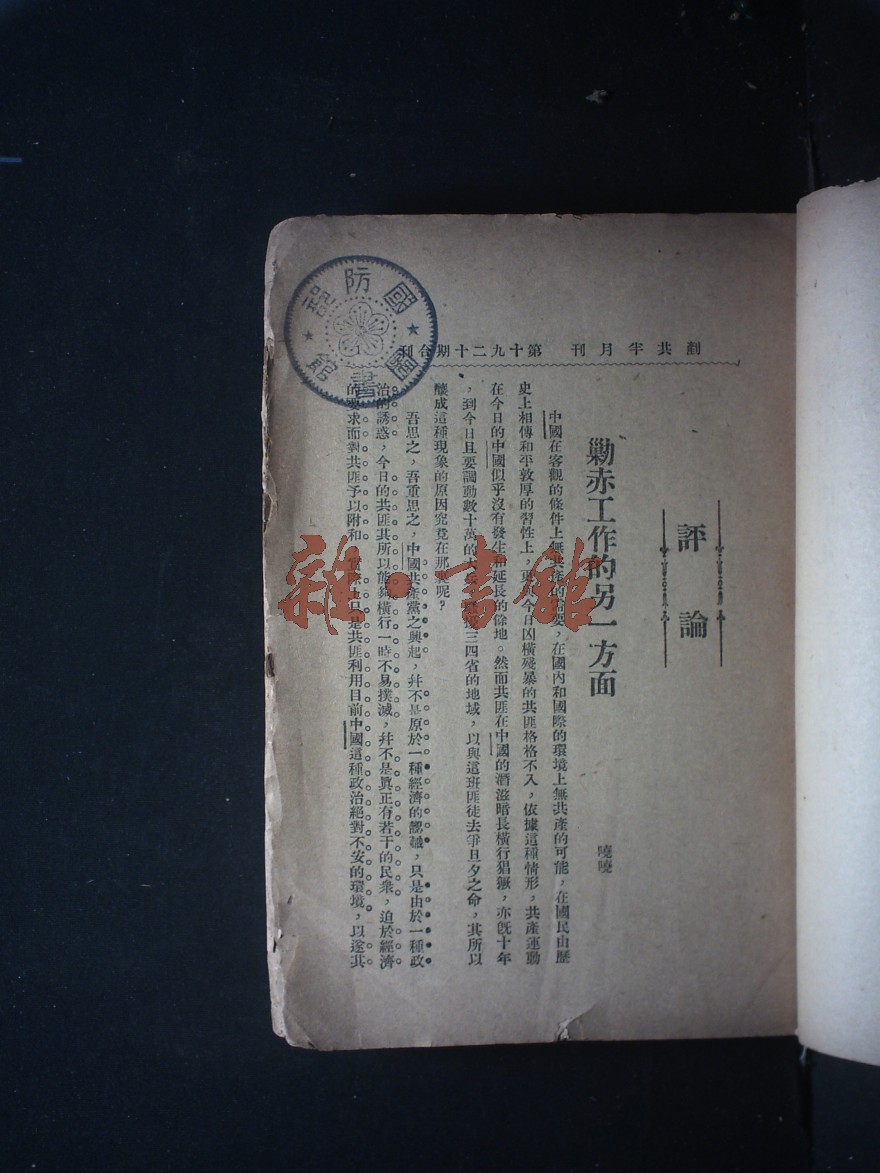 剷共半月刊 第十九二十期合刊 1
國防部圖書館
評論
勦赤工作的另一方面
曉曉
中國在客觀的條件上無共產的需要，在國內和國際的環境上無共產的可能，在國民由歷
史上相傳和平敦厚的習性上，更與今日凶橫殘暴的共匪格格不入，依據這種情形，共產運動
在今日的中國似乎沒有發生和延長的餘地。然而共匪在中國的潛滋暗長橫行猖獗，亦旣十年
，到今日且要調動數十萬的大三四省的地域，以與這班匪徒去爭旦夕之命，其所以
釀成這種現象的原因究竟在那裏呢？
吾思之，吾重思之，中國共產黨之興起，幷不是原於一種經濟的，只是由於一種政
治的誘惑，今日的共匪其所以能夠橫行一時不易撲滅，幷不是眞正有若干的民衆，迫於經濟
的要求而對共匪予以附和，實際上只是共匪利用目前中國這種政治絕對不安的環境，以遂其
雜·書館